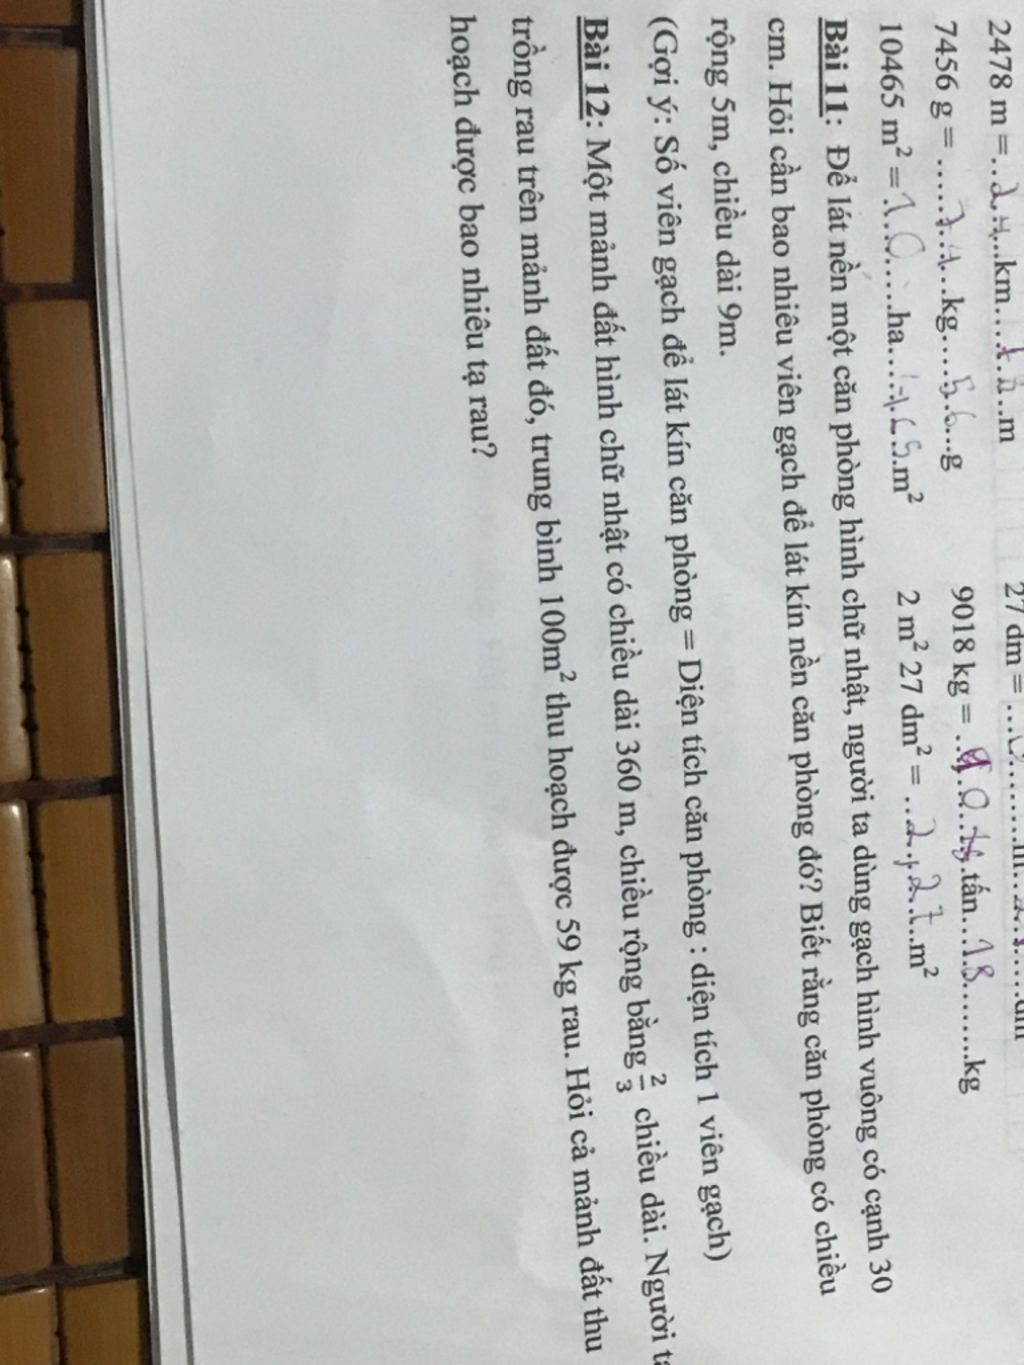 2478 m = ..2,4...km.........m
7456 g = ......7,4...kg....56...g
10465 m² = 1.0.....ha....465.m²
27 dm =
9018 kg = ...tấn...18.........kg
2 m² 27 dm² = ...2,27..m²
Bài 11: Để lát nền một căn phòng hình chữ nhật, người ta dùng gạch hình vuông có cạnh 30
cm. Hỏi cần bao nhiêu viên gạch để lát kín nền căn phòng đó? Biết rằng căn phòng có chiều
rộng 5m, chiều dài 9m.
(Gợi ý: Số viên gạch để lát kín căn phòng = Diện tích căn phòng : diện tích 1 viên gạch)
Bài 12: Một mảnh đất hình chữ nhật có chiều dài 360 m, chiều rộng bằng 2/3 chiều dài. Người
trồng rau trên mảnh đất đó, trung bình 100m² thu hoạch được 59 kg rau. Hỏi cả mảnh đất thu
hoạch được bao nhiêu tạ rau?